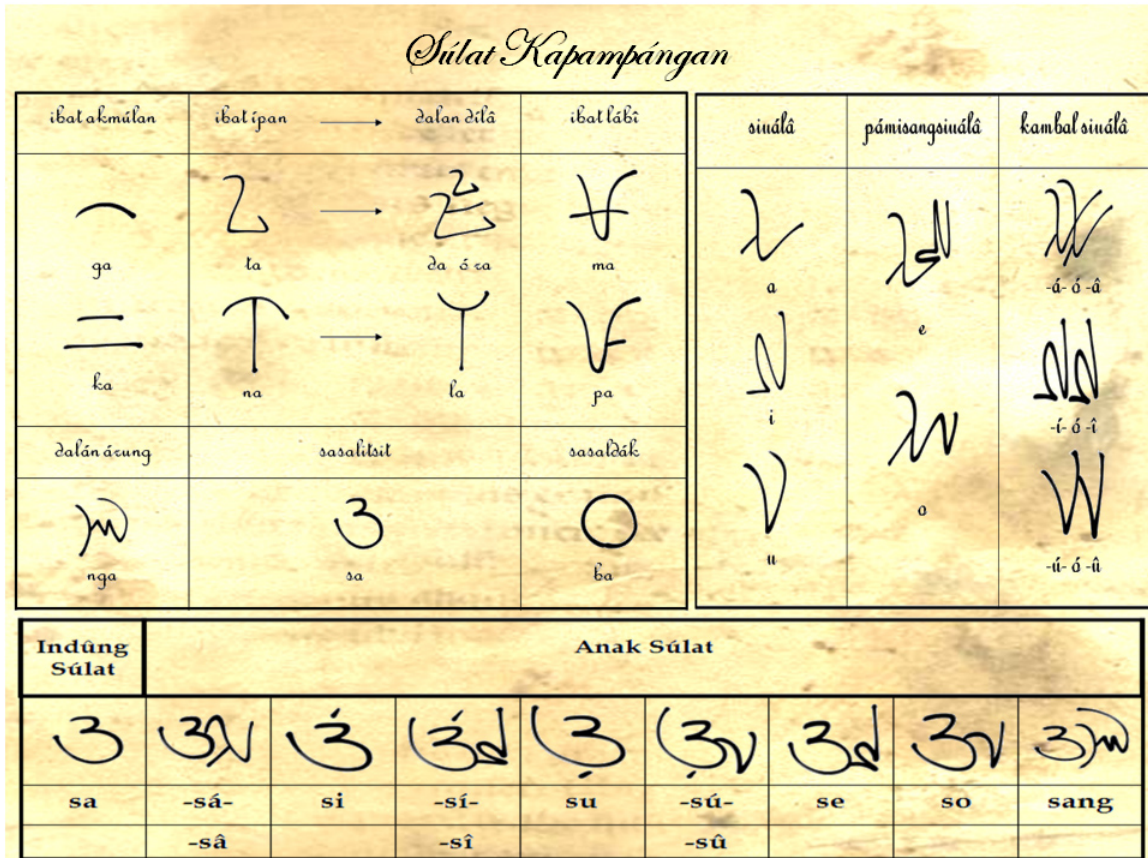 Súlat Kapampángan
ibat akmúlan ibat ípan → dalan dílâ ibat lábî
ga ta → da ó ra ma
ka na → la pa
dalán árung sasalitsit sasaldák
nga sa ba
siuálâ pámisangsiuálâ kambal siuálâ
a e -á- ó -â
i o -í- ó -î
u -ú- ó -û
Indûng Súlat Anak Súlat
sa -sá- si -sí- su -sú- se so sang
-sâ -sî -sû